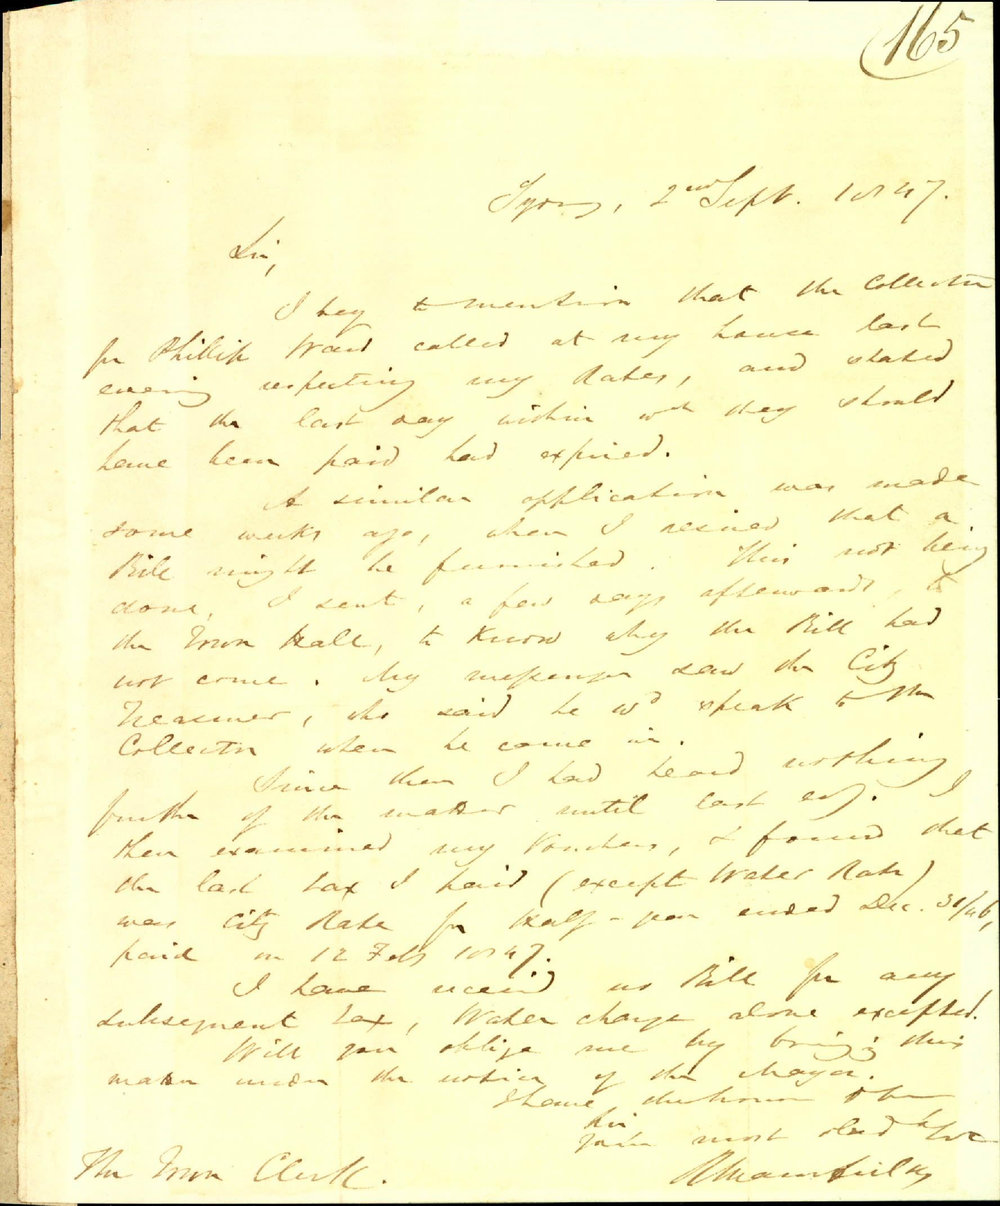 165
Sydney, 2nd Sept. 1847.
Sir,
I beg to mention that the Collector
for Phillip Ward called at my house last
evening respecting my Rates, and stated
that the last day within wch they should
have been paid had expired.
A similar application was made
some weeks ago, when I desired that a
Bill might be furnished. This not being
done, I sent, a few days afterwards, to
the Town Hall, to know why the Bill had
not come. My messenger saw the City
Treasurer, who said he wd speak to the
Collector when he came in.
Since then I had heard nothing
further of the matter until last evg. I
then examined my Vouchers, & found that
the last tax I paid (except Water Rate)
was City Rate for Half-year ended Dec. 31/46,
paid on 12 Feby 1847.
I have received no Bill for any
subsequent tax, Water charge alone excepted.
Will you oblige me by bringing this
matter under the notice of the Mayor.
I have the honor to be
Sir
your most obedt
R Mansfield
The Town Clerk.